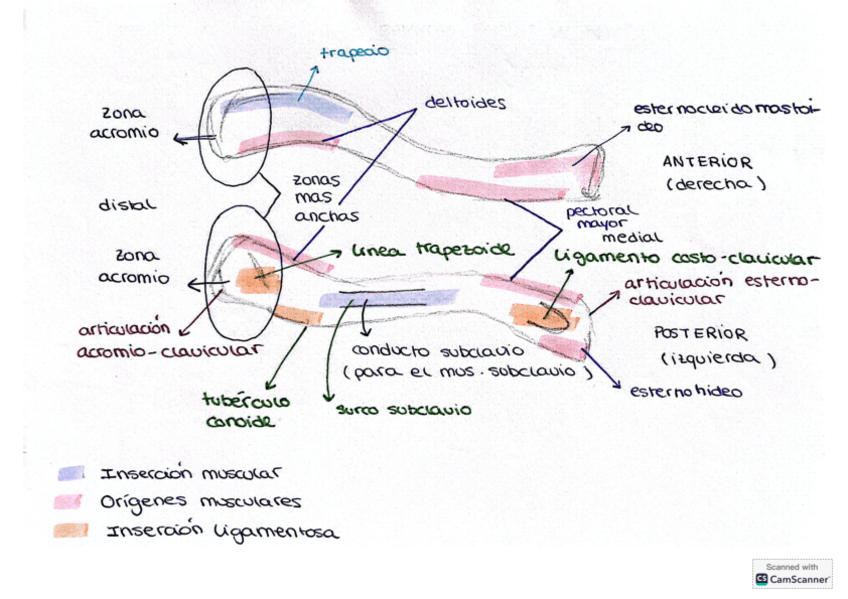 trapecio
deltoides
zona
acromio
esternocleidomastoi-
deo
ANTERIOR
(derecha)
distal
zonas
mas
anchas
pectoral
mayor
medial
zona
acromio
línea trapezoide
ligamento costo-clavicular
articulación esterno-
clavicular
articulación
acromio-clavicular
conducto subclavio
(para el mus. subclavio)
POSTERIOR
(izquierda)
tubérculo
conoide
surco subclavio
esternohideo
Inserción muscular
Orígenes musculares
Inserción ligamentosa
Scanned with
CS CamScanner